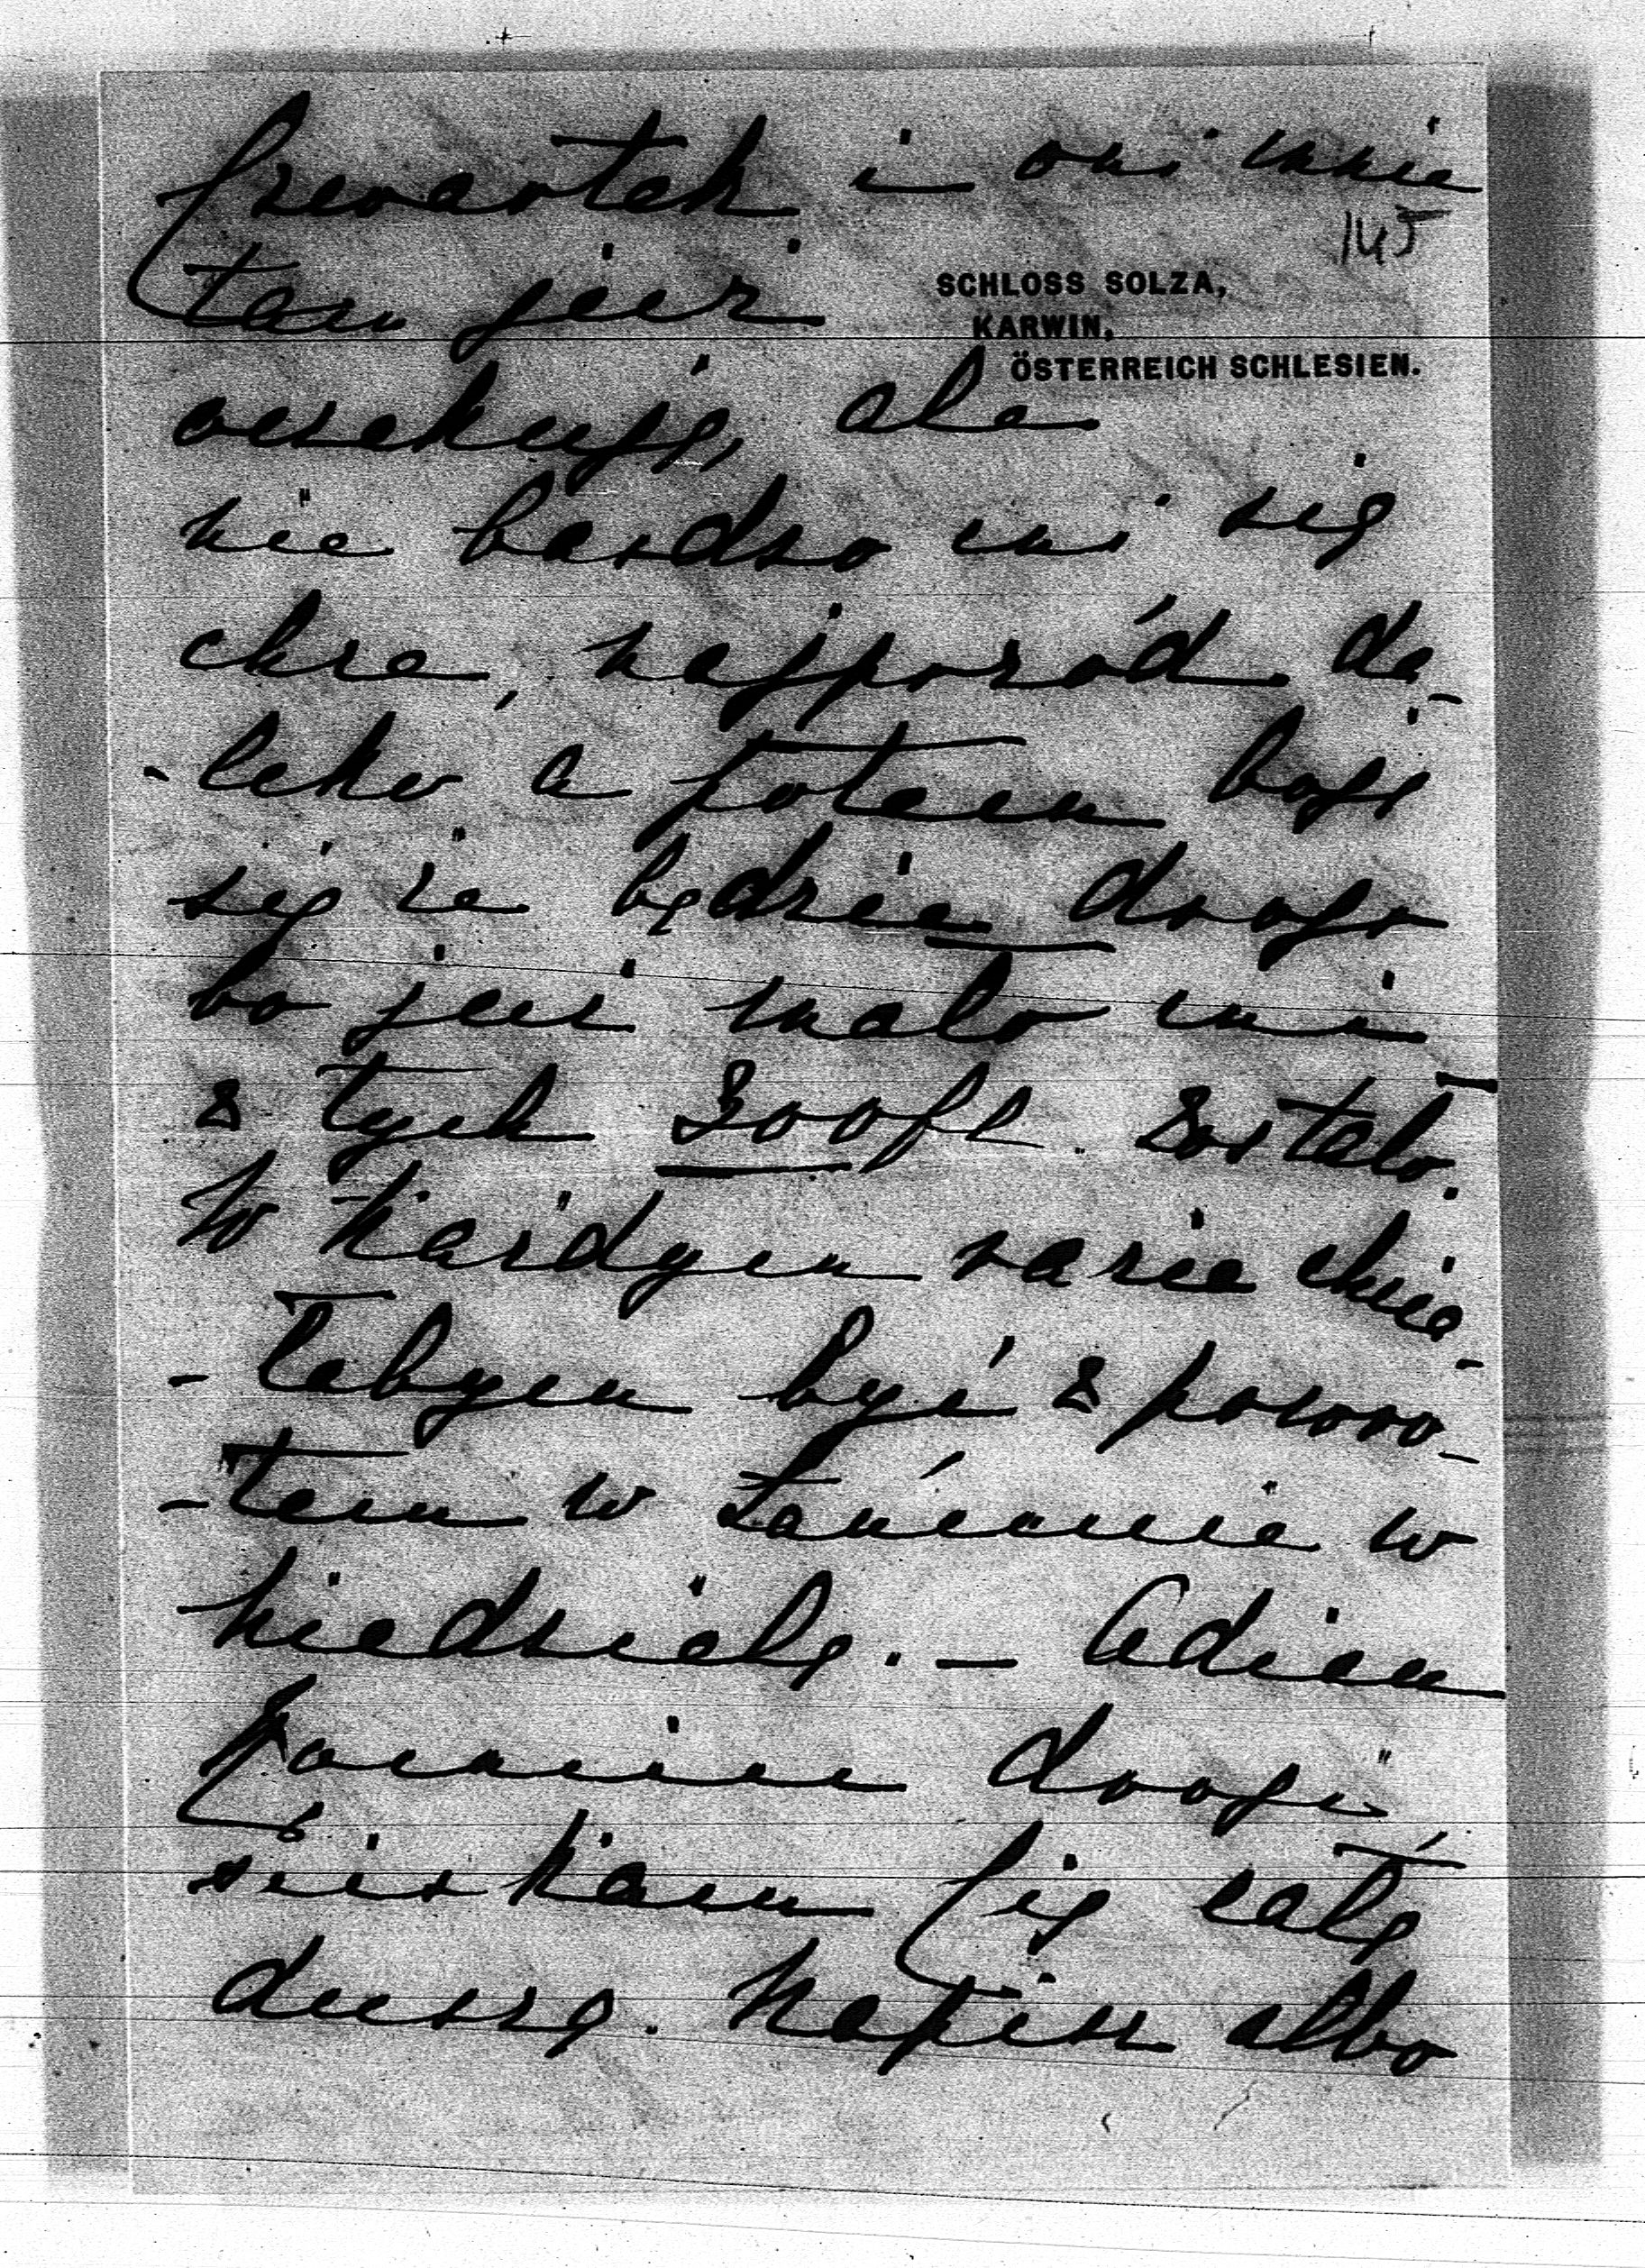 czwartek i oni mnie
145
tam jeść
SCHLOSS SOLZA,
KARWIN,
ÖSTERREICH SCHLESIEN.
oczekują, ale
nie bardzo mi się
chce, najprzód da-
-leko a potem boję
się że będzie drogo
bo już mało mi
z tych 300 fl. zostało.
W każdym razie chcia-
-łabym być z powro-
-tem w Łańcucie w
niedzielę. – Adieu
drogi,
ściskam Cię całą
duszą. Napisz albo